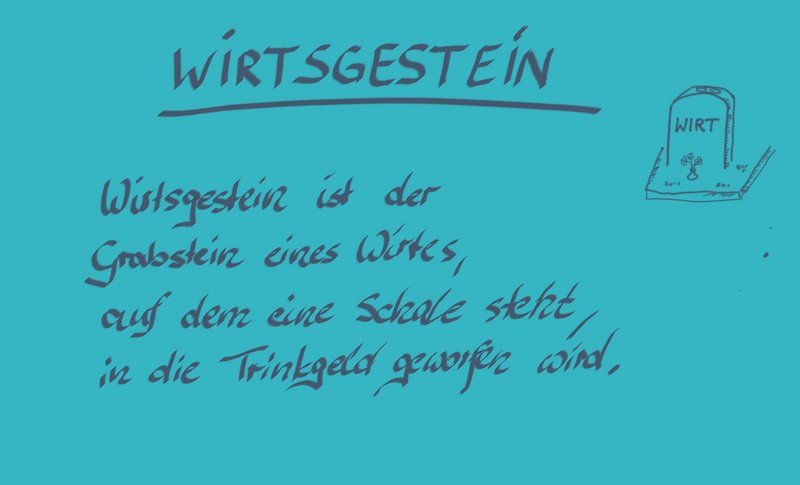 WIRTSGESTEIN
WIRT
Wirtsgestein ist der
Grabstein eines Wirtes,
auf dem eine Schale steht,
in die Trinkgeld geworfen wird.